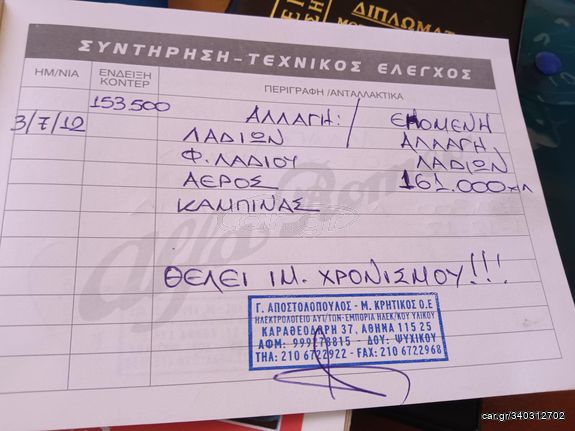 ΔΙΠΛΩΜΑΤ
ΣΥΝΤΗΡΗΣΗ-ΤΕΧΝΙΚΟΣ ΕΛΕΓΧΟΣ
ΗΜ/ΝΙΑ ΕΝΔΕΙΞΗ ΚΟΝΤΕΡ ΠΕΡΙΓΡΑΦΗ /ΑΝΤΑΛΛΑΚΤΙΚΑ
153500 ΑΛΛΑΓΗ: / ΕΠΟΜΕΝΗ
3/7/12 ΛΑΔΙΩΝ ΑΛΛΑΓΗ
Φ.ΛΑΔΙΟΥ ΛΑΔΙΩΝ
ΑΕΡΟΣ 161.000χλ
ΚΑΜΠΙΝΑΣ
Alfa Romeo
ΘΕΛΕΙ ΙΜ. ΧΡΟΝΙΣΜΟΥ!!!
Γ. ΑΠΟΣΤΟΛΟΠΟΥΛΟΣ - Μ. ΚΡΗΤΙΚΟΣ Ο.Ε
ΗΛΕΚΤΡΟΛΟΓΕΙΟ ΑΥΤ/ΤΩΝ-ΕΜΠΟΡΙΑ ΗΛΕΚ/ΚΟΥ ΥΛΙΚΟΥ
ΚΑΡΑΘΕΟΔΑΡΗ 37, ΑΘΗΝΑ 115 25
ΑΦΜ: - ΔΟΥ: ΨΥΧΙΚΟΥ
ΤΗΛ: 210 6722922 - FAX: 210 6722968
car.gr/340312702